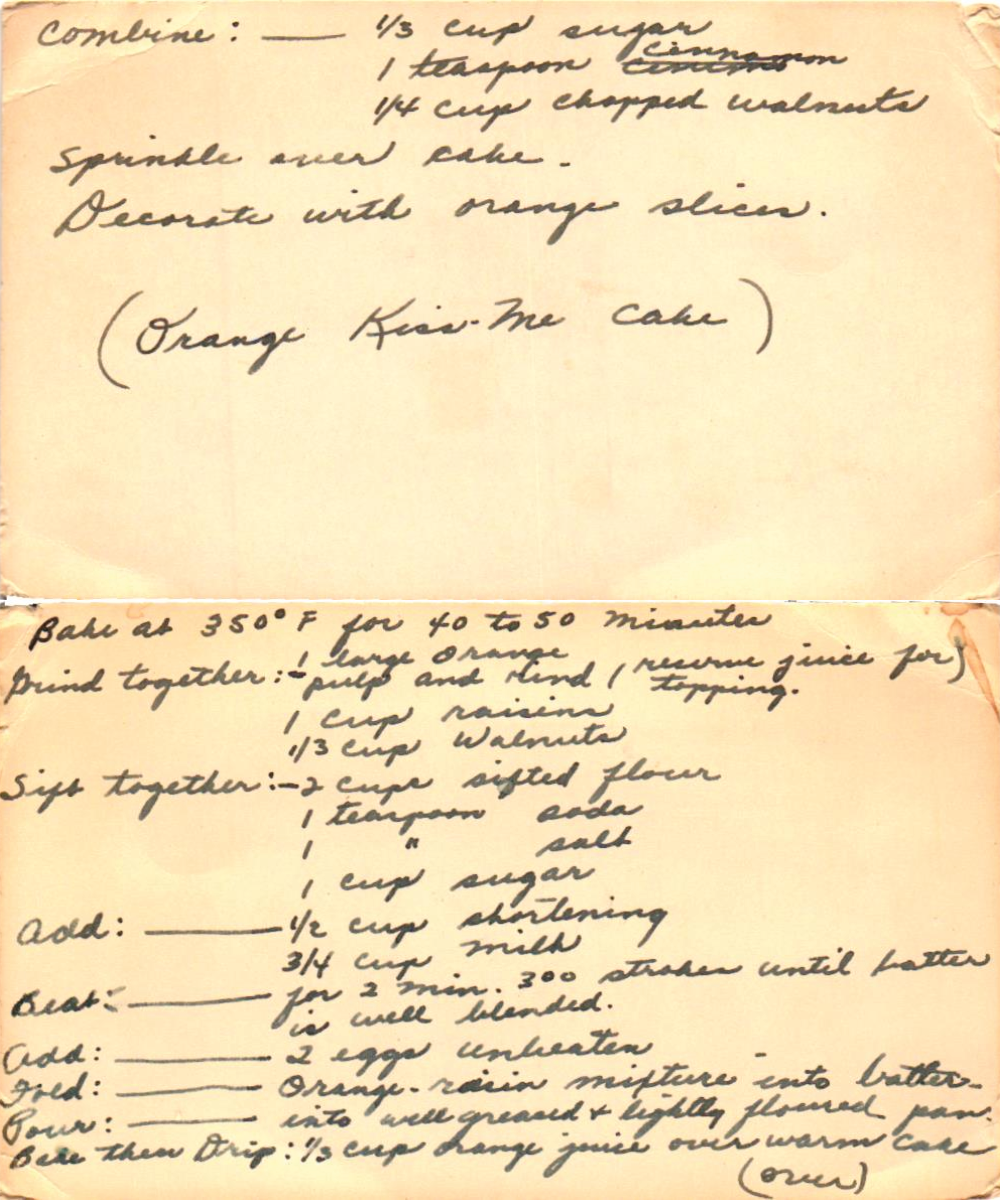 Combine: — 1/3 cup sugar
1 teaspoon cinnamon
1/4 cup chopped walnuts
Sprinkle over cake.
Decorate with orange slices.
(Orange Kiss-Me Cake)
Bake at 350° F for 40 to 50 minutes
Grind together:- 1 large orange
pulp and rind (reserve juice for)
topping.
1 cup raisins
1/3 cup walnuts
Sift together:- 2 cups sifted flour
1 teaspoon soda
1 " salt
1 cup sugar
Add: — 1/2 cup shortening
3/4 cup milk
Beat: — for 2 min. 300 strokes until batter
is well blended.
Add: — 2 eggs unbeaten
Fold: — Orange-raisin mixture into batter-
Pour: — into well greased + lightly floured pan.
Bake then Drip: 1/3 cup orange juice over warm cake
(over)